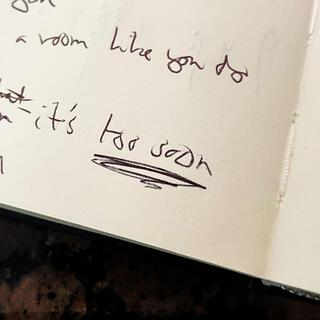 a room like you do
it's too soon